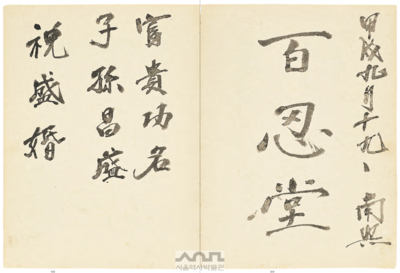 甲戌九月十九、南熙
百忍堂
富貴功名
子孫昌盛
祝盛婚
서울역사박물관